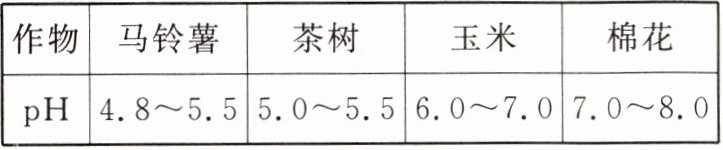 作物 马铃薯 茶树 玉米 棉花
pH 4.8～5.5 5.0～5.5 6.0～7.0 7.0～8.0